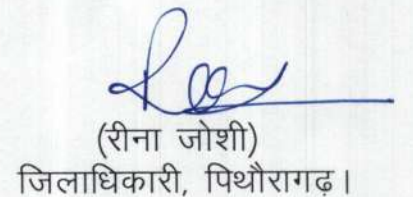 (रीना जोशी)
जिलाधिकारी, पिथौरागढ़।